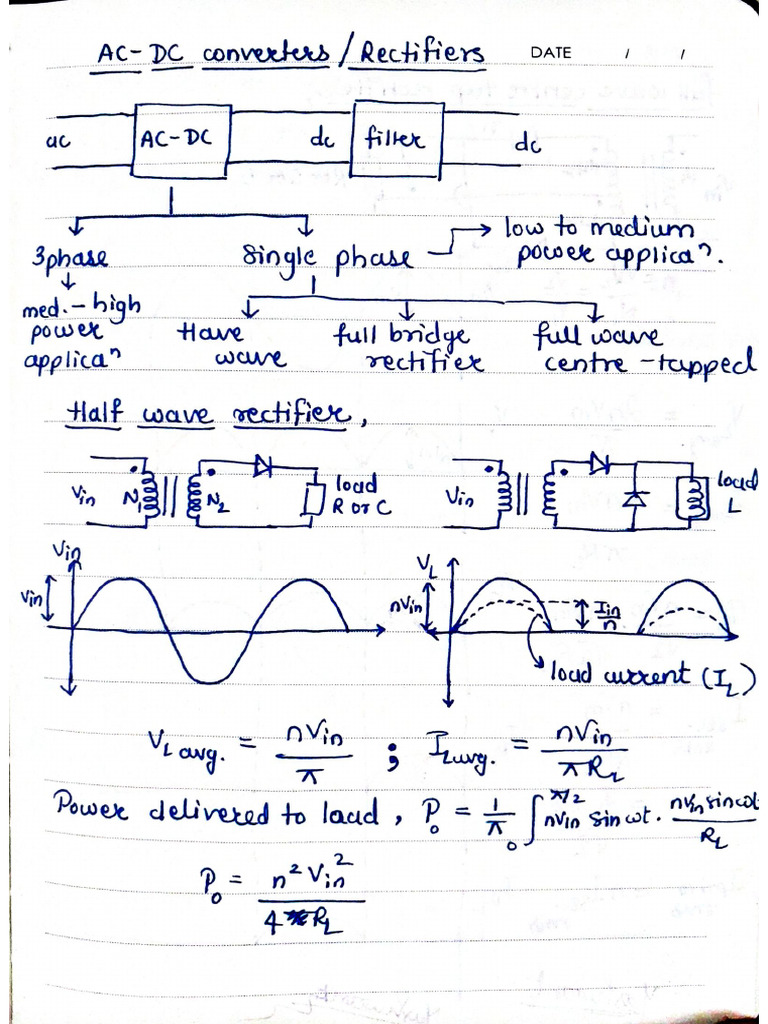 AC-DC converters / Rectifiers DATE / /
ac AC-DC dc filter dc
3phase Single phase → low to medium
power applicaⁿ.
med. - high
power
applicaⁿ
Have
wave
full bridge
rectifier
full wave
centre-tapped
Half wave rectifier,
Vin N₁ N₂ load
R or C
Vin load
L
Vin
Vin
V_L
nVin
Iin/n
load current (I_L)
V_L avg. = nVin/π ; I_L avg. = nVin/πR_L
Power delivered to load, P₀ = 1/π ₀∫^π/2 nVin sin ωt . nVin sin ωt/R_L
P₀ = n² Vin²/4 R_L